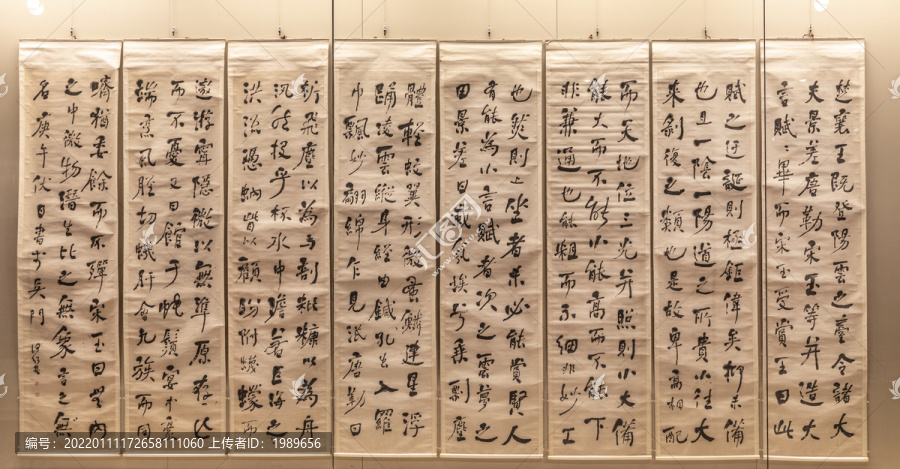 楚襄王既登陽雲之臺令諸大
夫景差唐勒宋玉等并造大
言賦〻畢而宋玉受賞王曰此
賦之迂誕則極鉅偉矣抑未備
也且一陰一陽道之所貴小往大
來剝復之類也是故卑高相配
而天地位三光并照則小大備
能大而不能小能高而不能下
非兼通也能粗而不細非妙工
也然則上坐者未必能賞賢人
有能為小言賦者之雲夢之
田景差曰載氛埃兮乘剽塵
體輕蚊翼形微蚤鱗浮
踊凌雲縱身經由鍼孔出入羅
巾飄妙翩綿乍見泯唐勒曰
析飛塵以為輿剖粃糠以為舟
汎然投乎杯水中澹若巨海之
洪流憑蚋眥以顧盼附蠛蠓而
遨游寧隱微以無準原存亡
而不憂又曰館于蠅鬚宴于毫
端烹虱脛切蟣肝會九族而同
嚌猶委餘而不殫宋玉曰無內
之中微物潛生比之無象言之無
名庚午伏日書於吳門
编号:20220111172658111060 上传者ID: 1989656